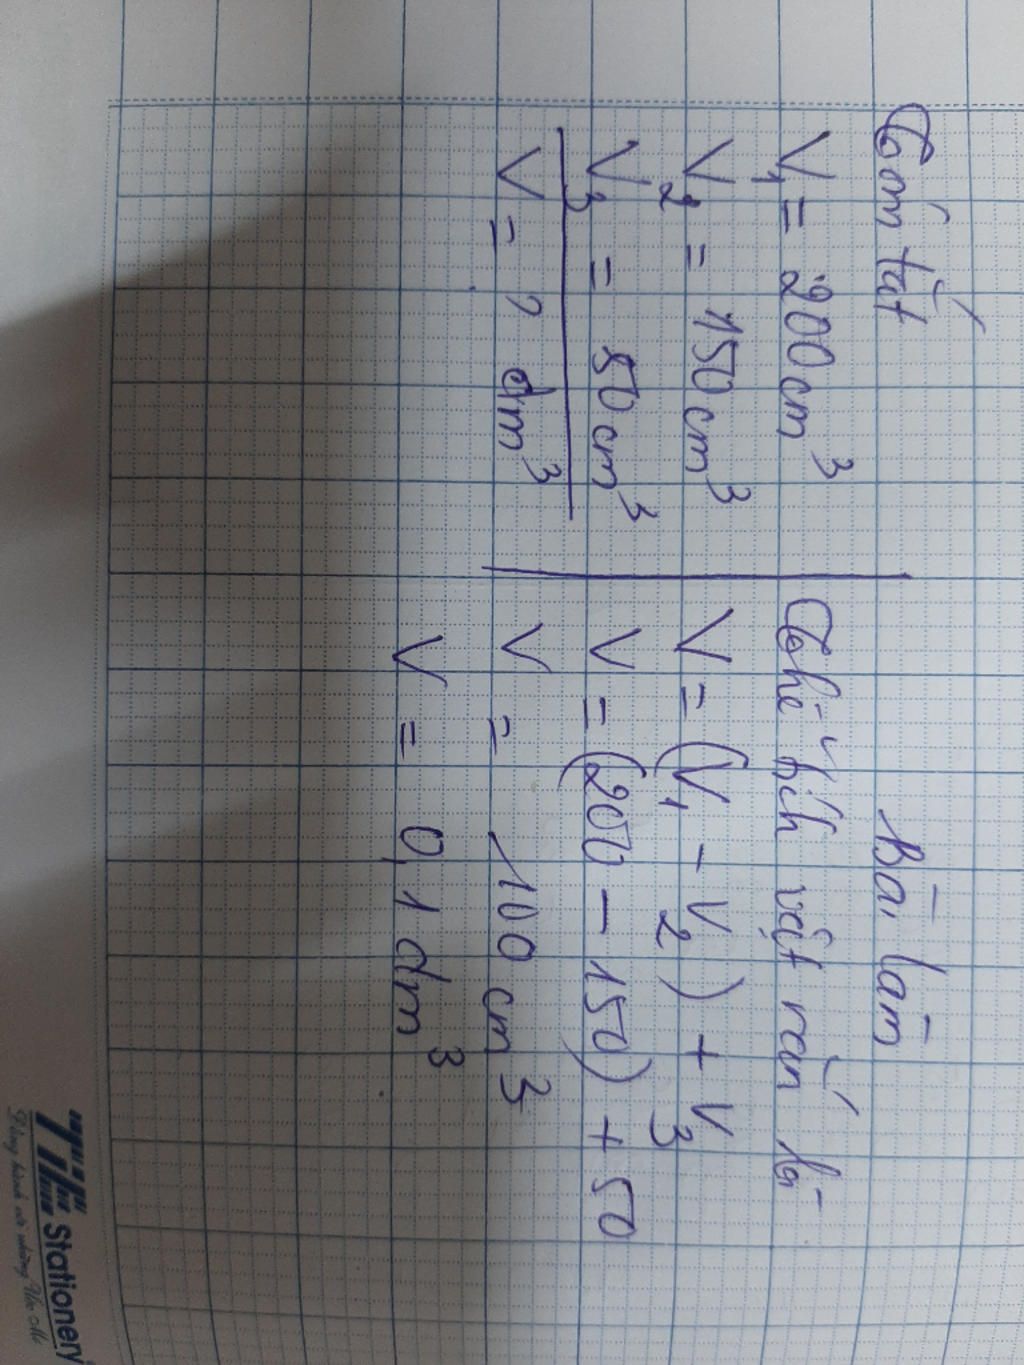 Tóm tắt
V₁ = 200 cm³
V₂ = 150 cm³
V₃ = 50 cm³
V = ? dm³
Bài làm
Thể tích vật rắn là
V = (V₁ - V₂) + V₃
V = (200 - 150) + 50
V = 100 cm³
V = 0,1 dm³
TL Stationery